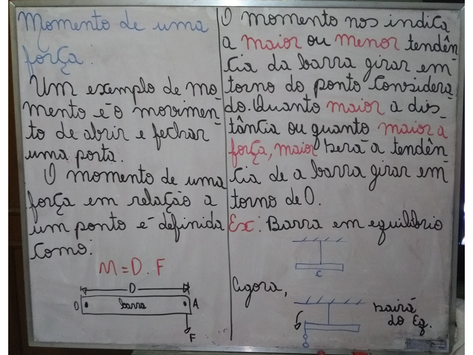 Momento de uma
força.
Um exemplo de mo-
mento é o movimen-
to de abrir e fechar
uma porta.
O momento de uma
força em relação a
um ponto é definida
como:
M = D . F
D
O
barra
A
F
O momento nos indica
a maior ou menor tendên-
cia da barra girar em
torno do ponto considera-
do. Quanto maior a dis-
tância ou quanto maior a
força, maior será a tendên-
cia de a barra girar em
torno de O.
Ex: Barra em equilíbrio
C
Agora,
sairá
do Eq.